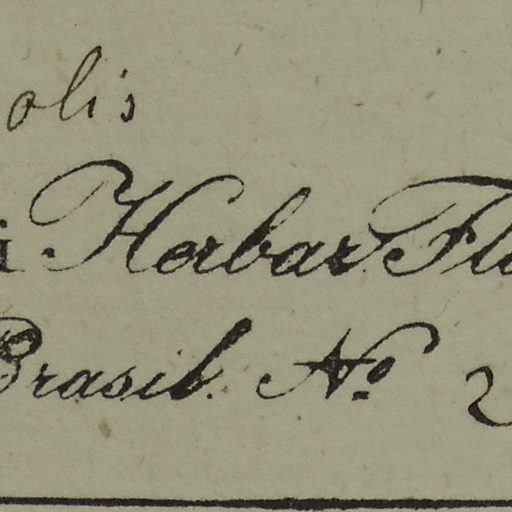 olis
i Herbar Fl
Brasil. No. 2